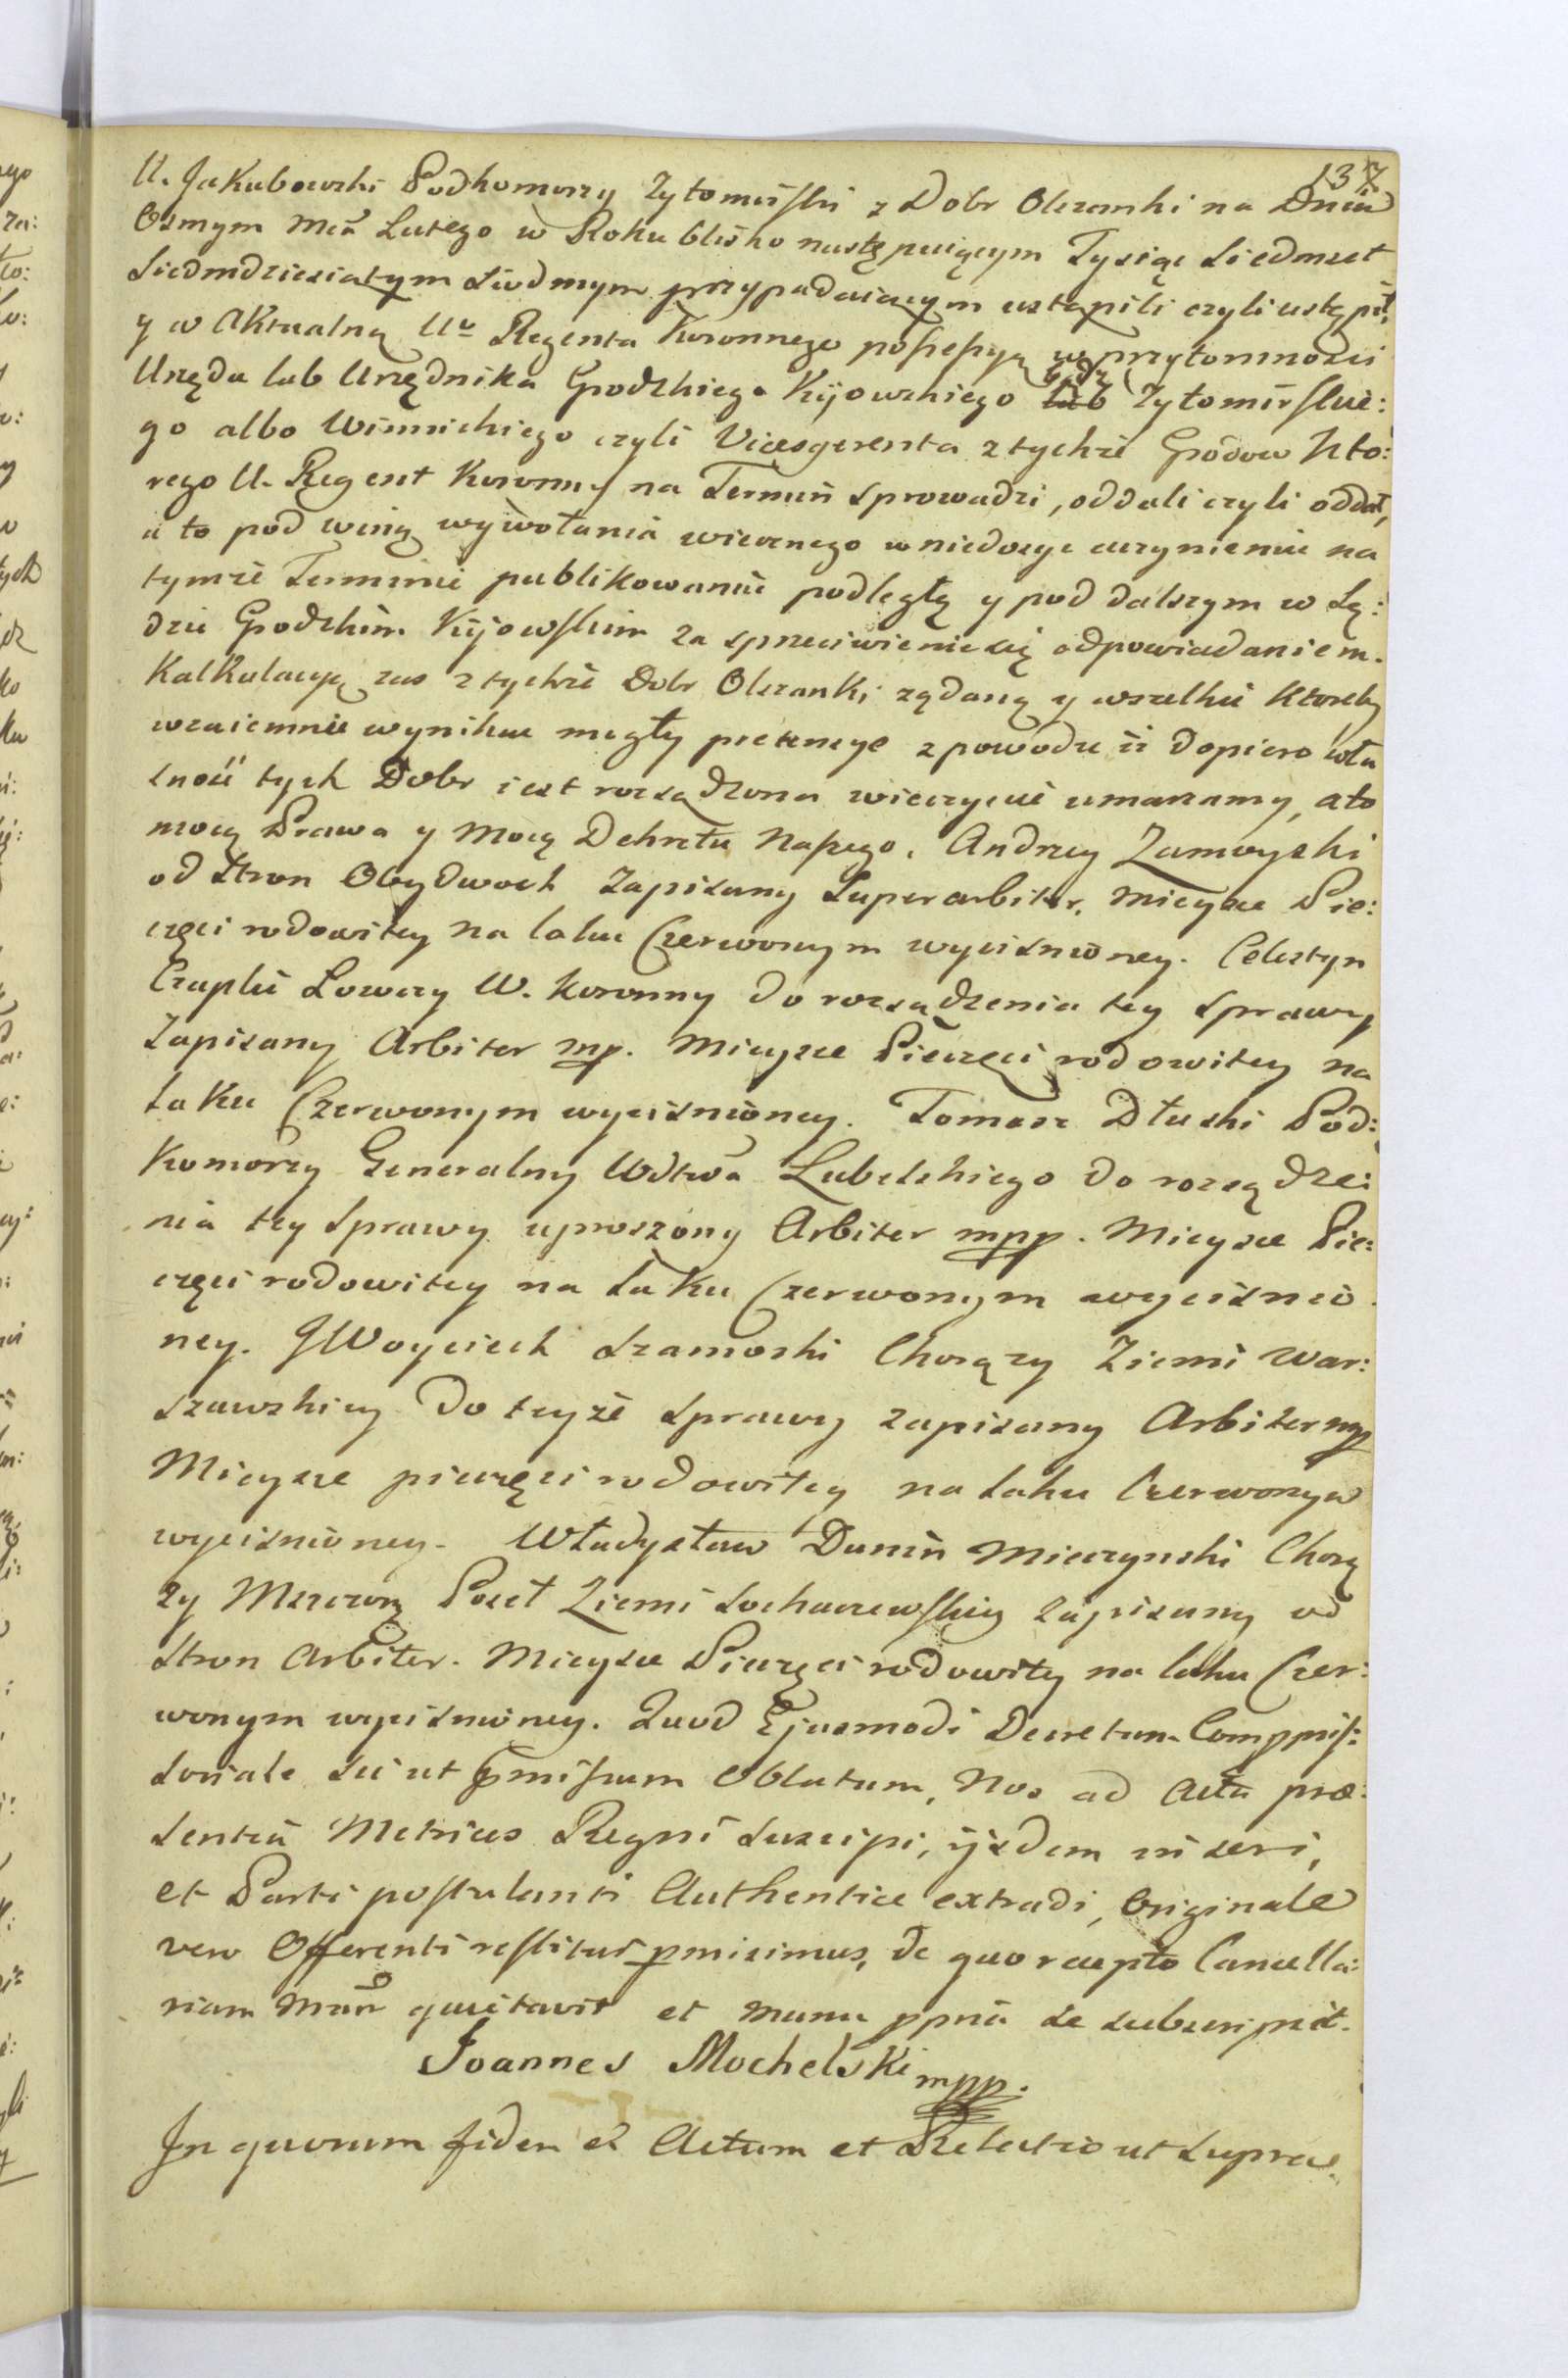 137
U. Jakubowski Podkomorzy Zytomirski z Dobr Olszanki na Dniu
Osmym Mca Lutego w Roku blisko następuiącym Tysiąc Siedmset
Siedmdziesiatym Siodmym przypadaiącym ustąpili czyli ustąpił,
y w Aktualną Uo Regenta Koronnego possessyą w przytomnosci
Urzędu lub Urzędnika Grodzkiego Kijowskiego lub bądz Zytomirskie:
go albo Winnickiego czyli Vicesgerenta z tychże Grodow kto:
rego U. Regent Koronny na Termin sprowadzi, oddali czyli oddał,
a to pod winą wywołania wiecznego w niedosyc uczynieniu na
tymże Terminie publikowaniu podległą y pod dalszym w Są:
dzie Grodzkim Kijowskim za sprzeciwienie się odpowiadaniem.
Kalkulacyą zas z tychże Dobr Olszanki ządaną y wszelkie ktoreby
wzaiemnie wyniknac mogły pretensye z powodu iż dopiero wła
snosć tych Dobr iest rozsądzona wieczyscie umarzamy, a to
mocą Prawa y Mocą Dekretu Naszego. Andrzey Zamoyski
od Stron Obydwoch Zapisany Superarbiter. Mieysce Pie:
częci rodowitey na laku Czerwonym wycisnioney. Celestyn
Czaplic Łowczy W. Koronny do rozsądzenia tey sprawy
Zapisany Arbiter mp. Mieysce Pieczęci rodowitey na
Laku Czerwonym wycisnioney. Tomasz Dłuski Pod:
Komorzy Generalny Wdztwa Lubelskiego do rozsądze:
nia tey sprawy uproszony Arbiter mpp. Mieysce Pie:
częci rodowitey na Laku Czerwonym wycisnio
ney. J Woyciech Szamoski Chorąży Ziemi War:
szawskiey do teyże sprawy zapisany Arbiter mp
Mieysce pieczęci rodowitey na Laku Czerwonym
wycisnioney. Władysław Dunin Mieczynski Chorą
zy Mszczon Poseł Ziemi Sochaczewskiey zapisany od
Stron Arbiter. Mieysce Pieczęci rodowitey na laku Czer:
wonym wycisnioney. Quod Ejusmodi Decretum Comppris:
soriale sic ut pmissum Oblatum, Nos ad Acta præ:
sentia Metrices Regni suscipi, ijsdem inseri,
et Parti postulanti Authentice extradi, Originale
vero Offerenti restitui pmisimus, de quo recepto Cancella:
riam Mrem quietavit et manu ppria se subscripsit.
Joannes Mochelski mpp.
In quorum fidem et Actum et Relatio ut supra.